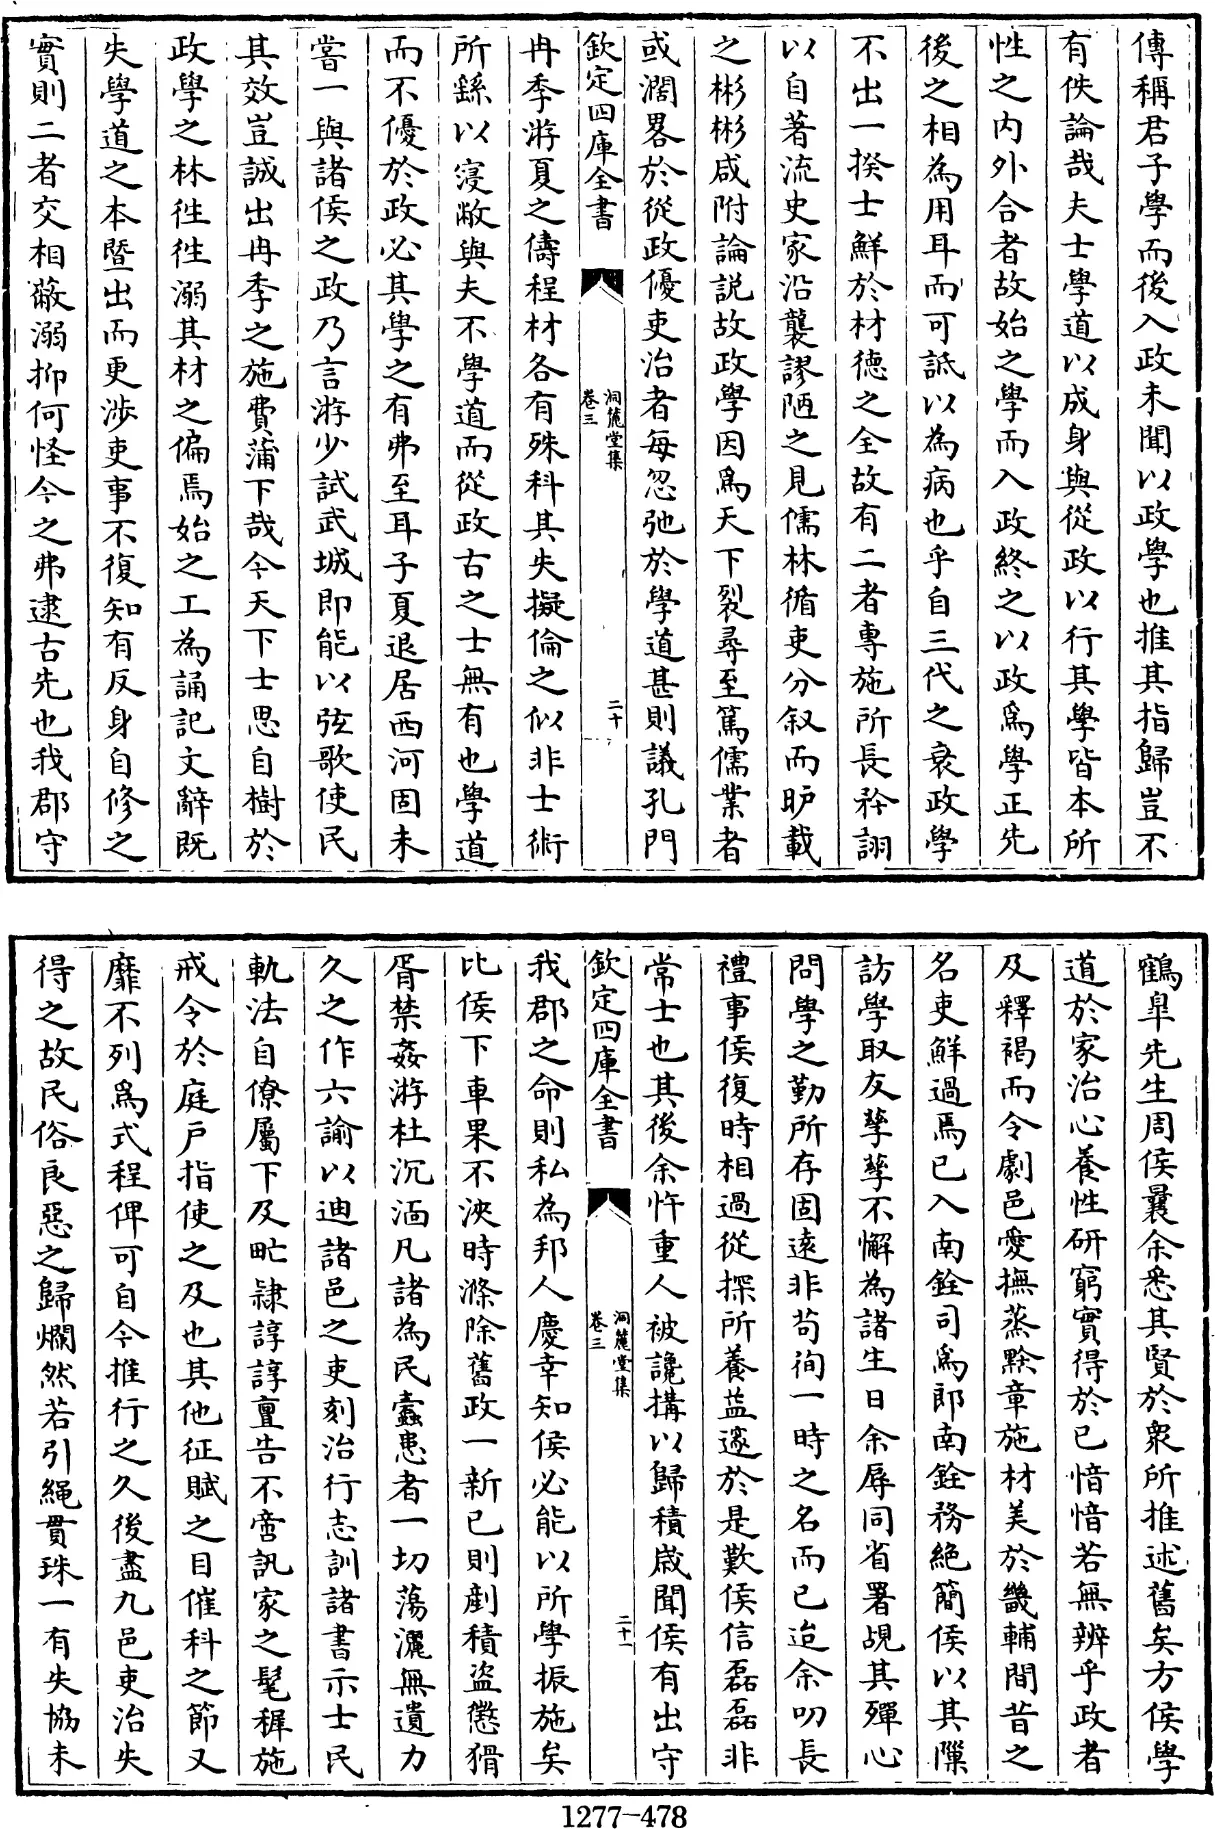 傳稱君子學而後入政未聞以政學也推其指歸豈不
有佚論哉夫士學道以成身與從政以行其學皆本所
性之内外合者故始之學而入政終之以政爲學正先
後之相為用耳而可詆以為病也乎自三代之衰政學
不出一揆士鮮於材德之全故有二者專施所長矜詡
以自著流史家沿襲謬陋之見儒林循吏分叙而昈載
之彬彬咸附論説故政學因爲天下裂尋至篤儒業者
或濶畧於從政優吏治者每忽弛於學道甚則議孔門
欽定四庫全書
洞麓堂集
卷三
二十
冉季游夏之儔程材各有殊科其失擬倫之似非士術
所繇以寖敝與夫不學道而從政古之士無有也學道
而不優於政必其學之有弗至耳子夏退居西河固未
嘗一與諸侯之政乃言游少試武城即能以弦歌使民
其效豈誠出冉季之施費蒲下哉今天下士思自樹於
政學之林徃徃溺其材之偏焉始之工為誦記文辭既
失學道之本曁出而更涉吏事不復知有反身自修之
實則二者交相蔽溺抑何怪今之弗逮古先也我郡守
鶴臯先生周侯曩余悉其賢於衆所推述舊矣方侯學
道於家治心養性研窮實得於已愔愔若無辨乎政者
及釋褐而令劇邑愛撫蒸黥章施材美於畿輔間昔之
名吏鮮過焉已入南銓司爲郎南銓務絶簡侯以其隟
訪學取友孳孳不懈為諸生日余辱同省署覘其殫心
問學之勤所存固逺非茍徇一時之名而已迨余叨長
禮事侯復時相過從探所養葢邃於是歎侯信磊磊非
常士也其後余忤重人被讒搆以歸積嵗聞侯有出守
欽定四庫全書
洞麓堂集
卷三
二十一
我郡之命則私為邦人慶幸知侯必能以所學振施矣
比侯下車果不浹時滌除舊政一新已則剷積盜懲猾
胥禁姦游杜沉湎凡諸為民蠧患者一切蕩灑無遺力
久之作六諭以迪諸邑之吏刻治行志訓諸書示士民
軌法自僚屬下及甿隷諄諄亶告不啻訊家之髦穉施
戒令於庭戸指使之及也其他征賦之目催科之節又
靡不列爲式程俾可自今推行之久後盡九邑吏治失
得之故民俗良惡之歸爛然若引繩貫珠一有失協未
1277-478